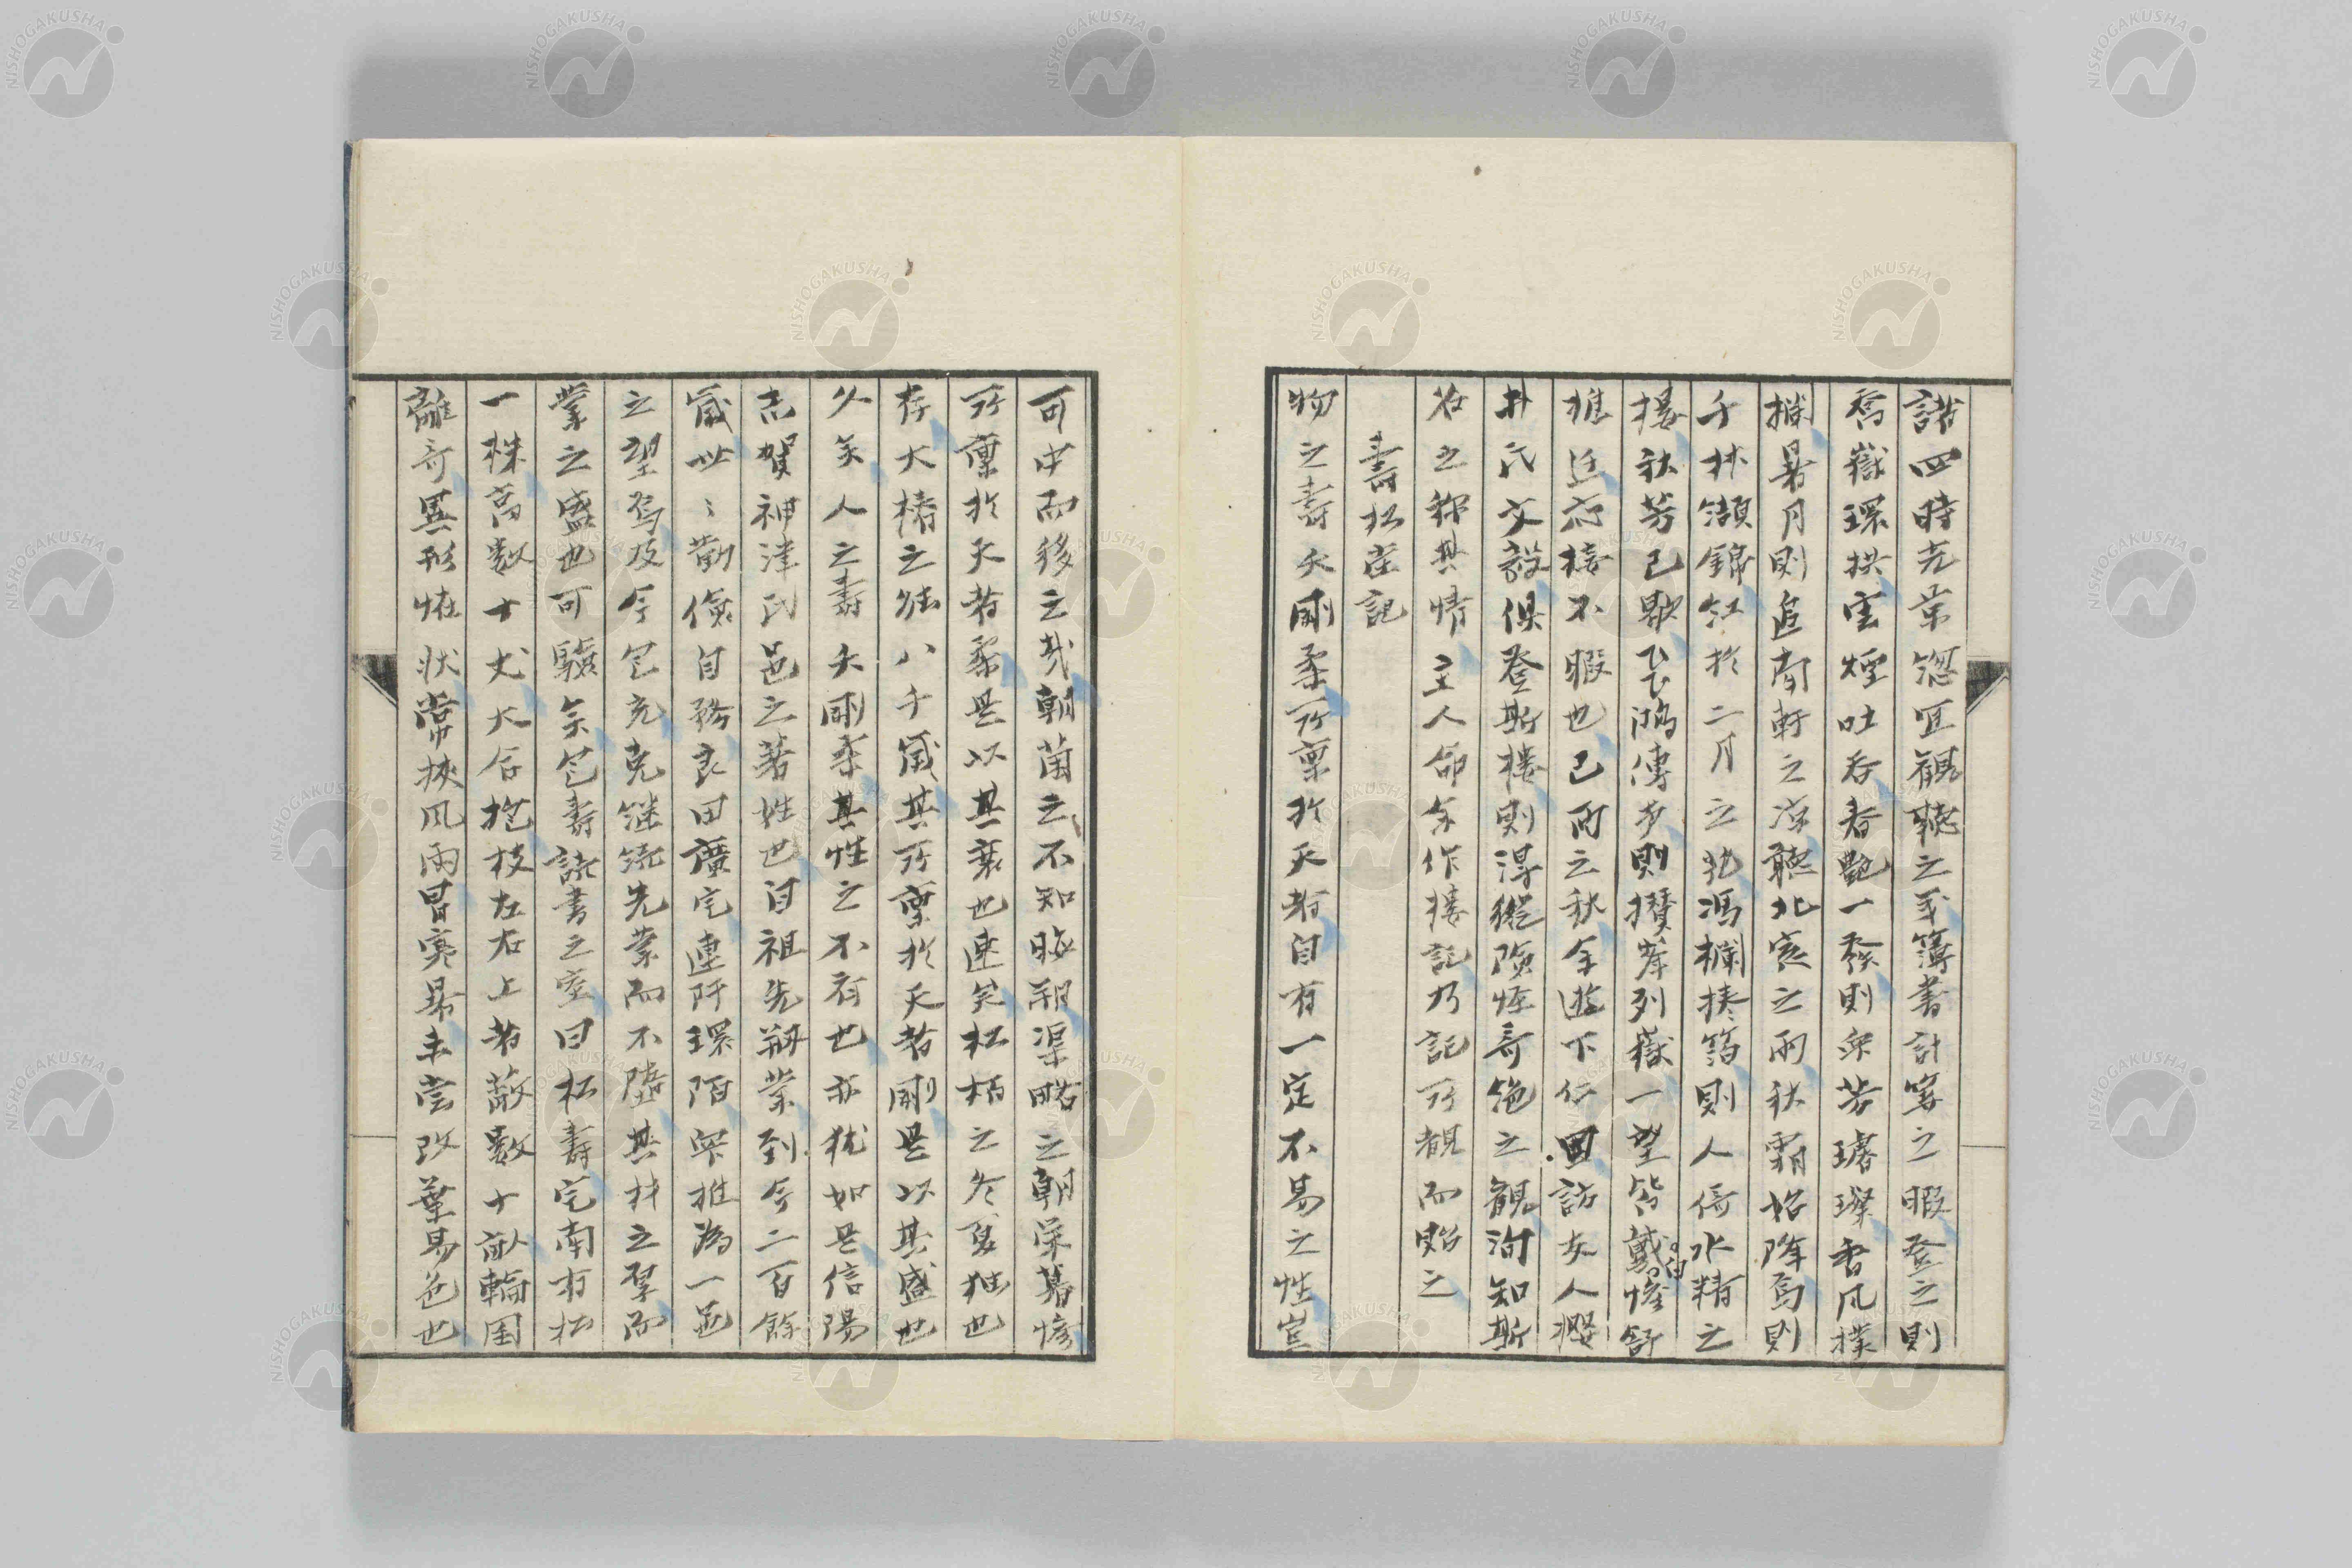 諾四時光景 宜観聴之 簿書計算之暇登之則
喬嶽環拱雲煙吐呑春艶一発則衆芳 璨香風撲
欄暑月則追南軒之涼聴北窓之雨秋霜始降焉則
千林纈錦紅於二月之花馮欄捲箔則人倚水精之
楼秋芳已歇飛鴻伝歩則攢峯列嶽一望皆戴白 舒
推遷応接不暇也己酉之秋余遊下仁田訪友人桜
井氏文毅倶登斯楼則得縦険怪奇絶之観洵知斯
名之称其情主人命余作楼記乃記所覩而貽之
壽松 記
物之壽夭剛柔所稟於天者自有一定不易之性豈
可中而移之哉朝菌之不知晦朔渠略之朝栄暮
所稟於天者柔是以其衰也速矣松柏之冬夏独也
存大椿之 八千歳其所稟於天者剛是以其盛也
久矣人之壽夭剛柔其性之不有也亦猶如是信陽
志賀神津氏邑之著姓也自祖先 業到今二百餘
歳世〻勤倹自務良田広宅連阡環陌衆推為一邑
之望焉及今邑克克継続先業而不堕其拝之挈而
業之盛也可験矣邑壽読書之室曰松壽宅南有松
一株高数十丈大合抱枝左右上者蔽数十畝輪囲
離奇異形怪状常挾風雨冒寒暑未嘗改葉易色也